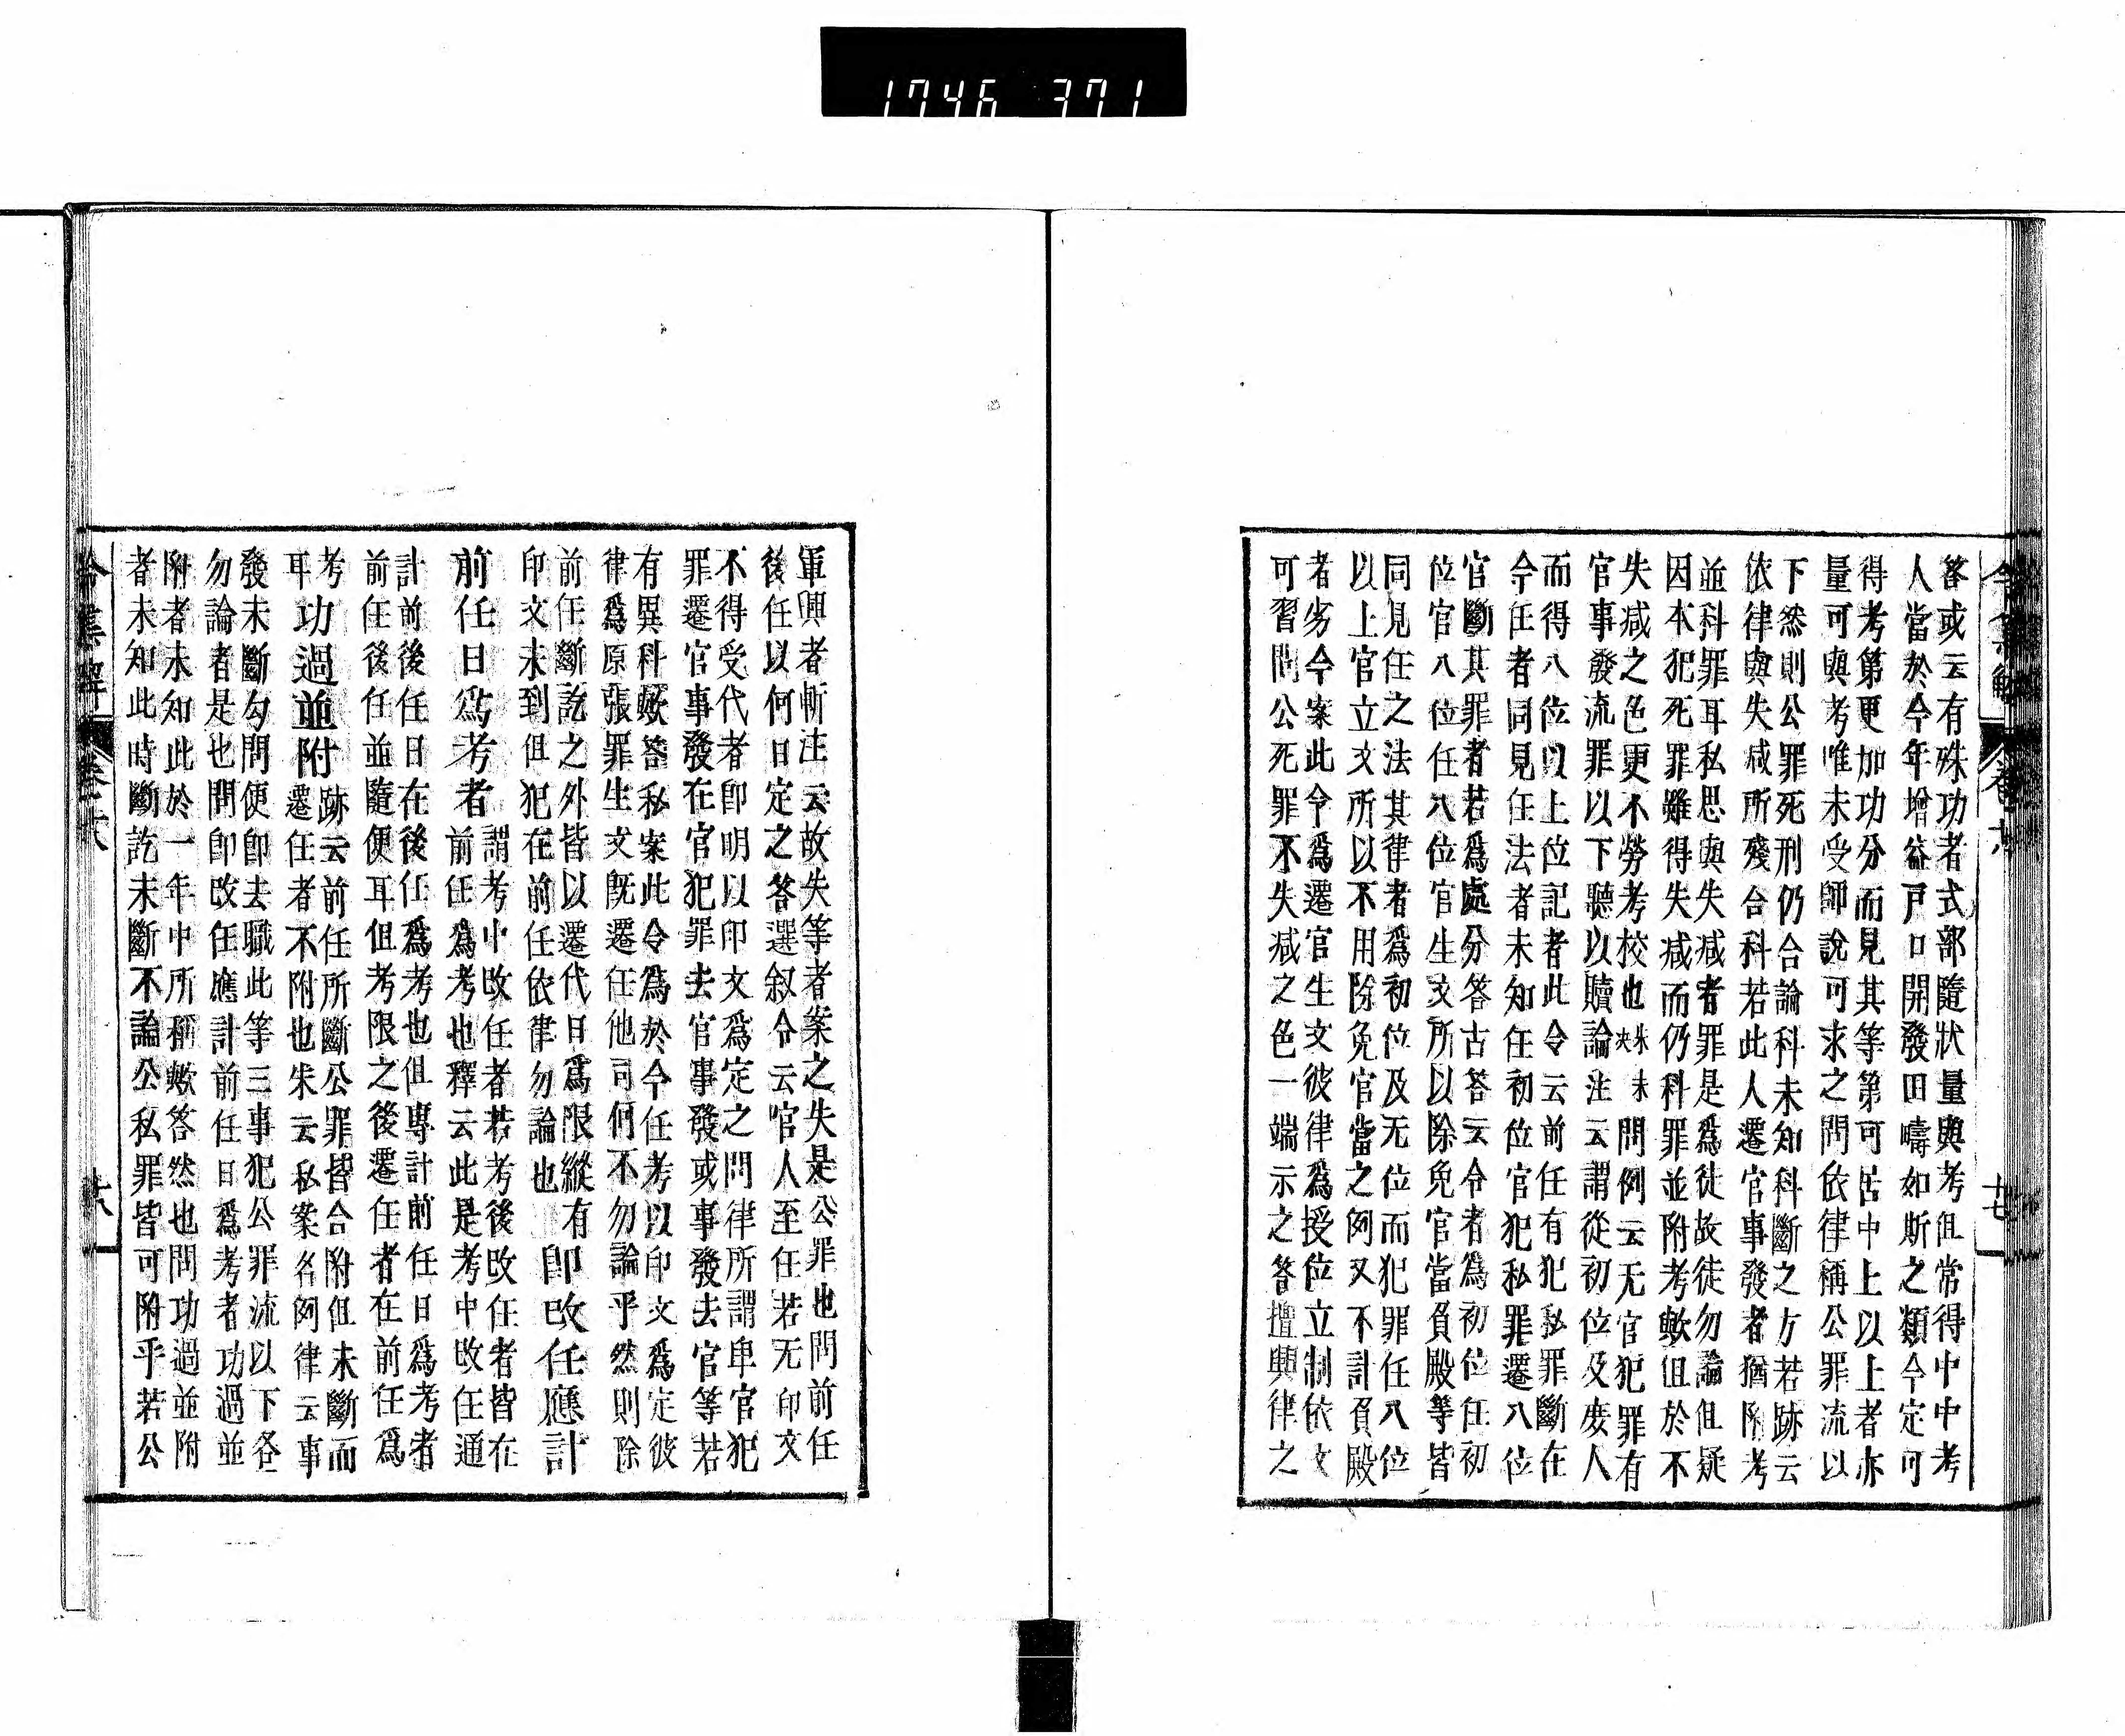 1746 371
答或云有殊功者式部隨狀量與考但常得中中考
人當於今年增益戸口開發田疇如斯之類今定可
得考第更加功分而見其等第可居中上以上者亦
量可與考唯未受師說可求之問依律稱公罪流以
下然則公罪死刑仍合論科未知科斷之方若跡云
依律與失减所殘合科若此人遷官事發者猶附考
並科罪耳私思與失减者罪是爲徒故徒勿論但疑
因本犯死罪雖得失减而仍科罪並附考歟但於不
失减之色更不勞考校也 問例云无官犯罪有
官事發流罪以下聽以贖論注云謂從初位及庶人
而得八位以上位記者此令云前任有犯私罪斷在
今任者同見任法者未知任初位官犯私罪遷八位
官斷其罪者若爲處分答古答云令者爲初位任初
位官八位任八位官生文所以除免官當負殿等皆
同見任之法其律者爲初位及无位而犯罪任八位
以上官立文所以不用除免官當之例又不計負殿
者劣今案此令爲遷官生文彼律爲授位立制依文
可習問公死罪不失减之色一端示之答擅興律之
令集解 卷十六 十七
軍興者斬注云故失等者案之失是公罪也問前任
後任以何日定之答選叙令云官人至任若无印文
不得受代者卽明以印文爲定之問律所謂卑官犯
罪遷官事發在官犯罪去官事發或事發去官等若
有異科歟答私案此令爲於今任考以印文爲定彼
律爲原張罪生文旣遷任他司何不勿論乎然則除
前任斷訖之外皆以遷代日爲限縱有
印文未到但犯在前任依律勿論也 卽改任應計
前任日爲考者 謂考中改任者若考後改任者皆在
前任爲考也釋云此是考中改任通
計前後任日在後任爲考也但專計前任日爲考者
前任後任並隨便耳但考限之後遷任者在前任爲
考跡云前任所斷公罪皆合附但未斷而
耳功過並附 遷任者不附也朱云私案名例律云事
發未斷勾問便卽去職此等三事犯公罪流以下各
勿論者是也問卽改任應計前任日爲考者功過並
附者未知此於一年中所稱歟答然也問功過並附
者未知此時斷訖未斷不論公私罪皆可附乎若公
令集解 卷十六 十八